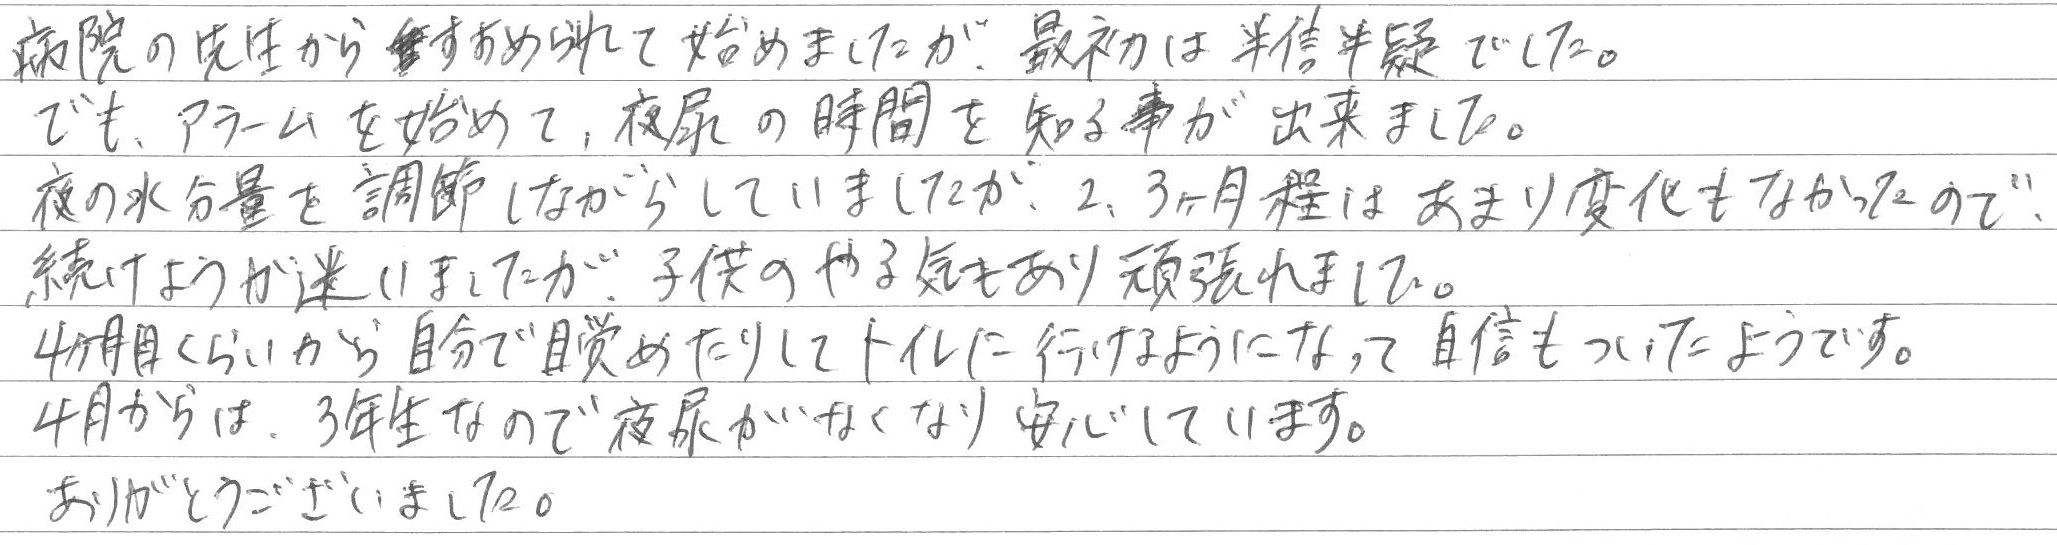 病院の先生からすすめられて始めましたが、最初は半信半疑でした。
でも、アラームを始めて、夜尿の時間を知る事が出来ました。
夜の水分量を調節しながらしていましたが、2、3ヶ月程はあまり変化もなかったので、
続けようか迷いましたが、子供のやる気もあり頑張れました。
4ヶ月目くらいから自分で目覚めたりしてトイレに行けるようになって自信もついたようです。
4月からは、3年生なので夜尿がなくなり安心しています。
ありがとうございました。